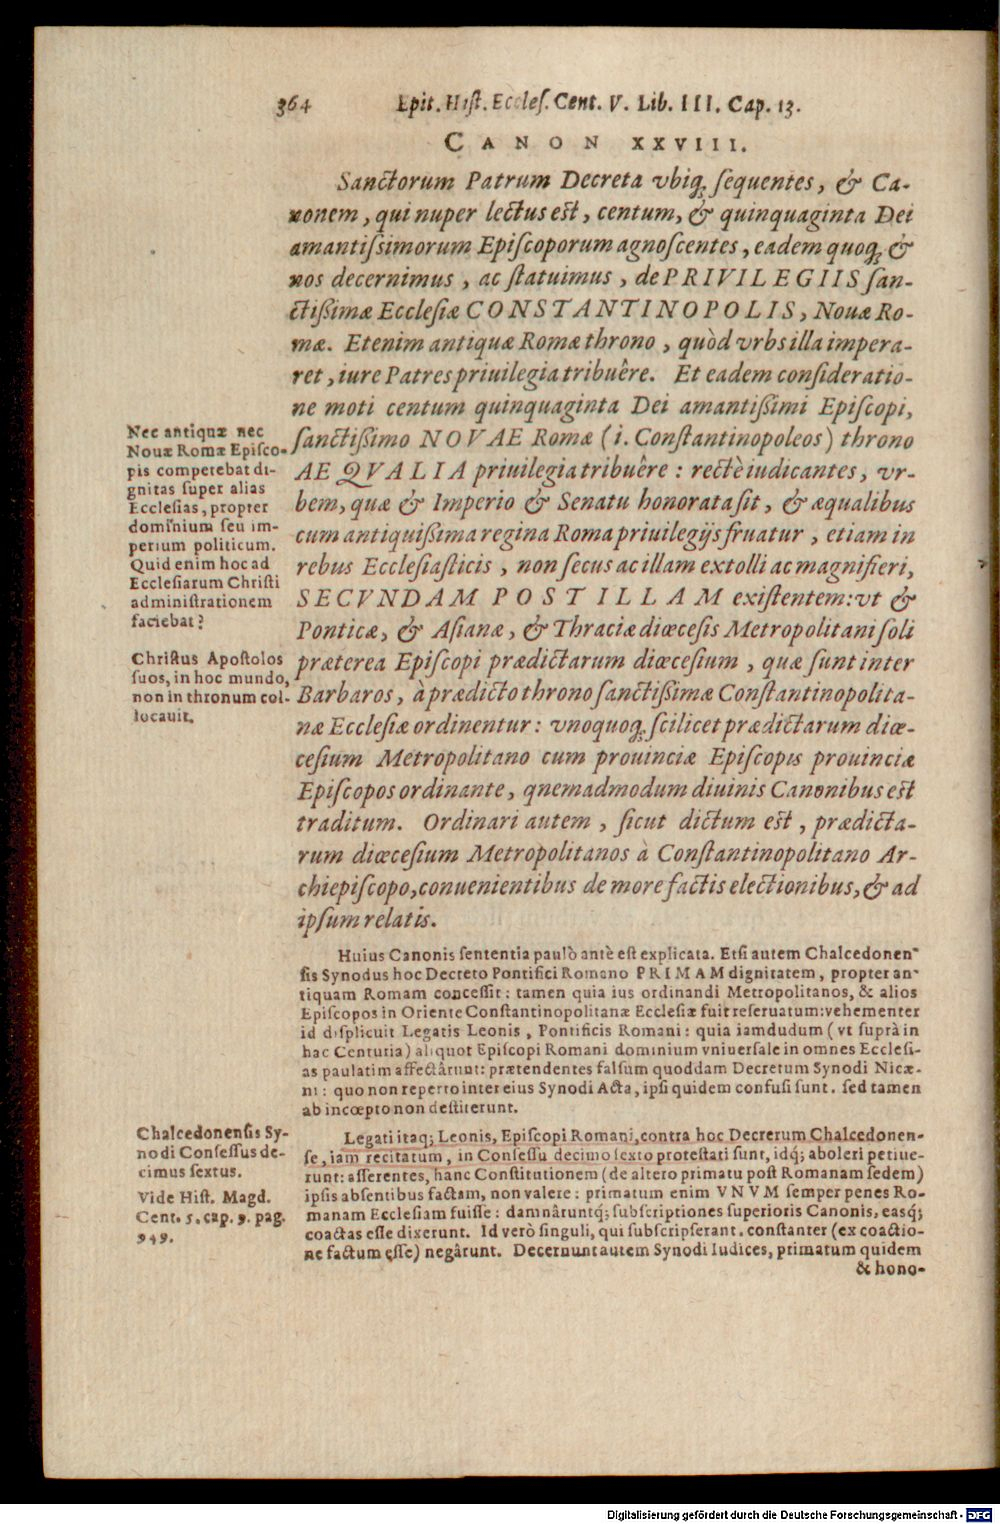 364 Epit. Hist. Eccles. Cent. V. Lib. III. Cap. 13.
CANON XXVIII.
Sanctorum Patrum Decreta vbiq; sequentes, & Ca-
nonem, qui nuper lectus est, centum, & quinquaginta Dei
amantissimorum Episcoporum agnoscentes, eadem quoq; &
nos decernimus, ac statuimus, de PRIVILEGIIS san-
ctißimæ Ecclesiæ CONSTANTINOPOLIS, Nouæ Ro-
mæ. Etenim antiquæ Romæ throno, quòd vrbs illa impera-
ret, iure Patres priuilegia tribuêre. Et eadem consideratio-
ne moti centum quinquaginta Dei amantißimi Episcopi,
sanctißimo NOVAE Romæ (i. Constantinopoleos) throno
AEQVALIA priuilegia tribuêre: rectè iudicantes, vr-
bem, quæ & Imperio & Senatu honorata sit, & æqualibus
cum antiquißima regina Roma priuilegijs fruatur, etiam in
rebus Ecclesiasticis, non secus ac illam extolli ac magnifieri,
SECVNDAM POST ILLAM existentem: vt &
Ponticæ, & Asianæ, & Thraciæ diœcesis Metropolitani soli
præterea Episcopi prædictarum diœcesium, quæ sunt inter
Barbaros, à prædicto throno sanctißimæ Constantinopolita-
næ Ecclesiæ ordinentur: vnoquoq; scilicet prædictarum diœ-
cesium Metropolitano cum prouinciæ Episcopis prouinciæ
Episcopos ordinante, qnemadmodum diuinis Canonibus est
traditum. Ordinari autem, sicut dictum est, prædicta-
rum diœcesium Metropolitanos à Constantinopolitano Ar-
chiepiscopo, conuenientibus de more factis electionibus, & ad
ipsum relatis.
Nec antiquæ nec
Nouæ Romæ Episco-
pis competebat di-
gnitas super alias
Ecclesias, propter
dominium seu im-
perium politicum.
Quid enim hoc ad
Ecclesiarum Christi
administrationem
faciebat?
Christus Apostolos
suos, in hoc mundo,
non in thronum col-
locauit.
Huius Canonis sententia paulò antè est explicata. Etsi autem Chalcedonen-
sis Synodus hoc Decreto Pontifici Romano PRIMAM dignitatem, propter an-
tiquam Romam concessit: tamen quia ius ordinandi Metropolitanos, & alios
Episcopos in Oriente Constantinopolitanæ Ecclesiæ fuit reseruatum: vehementer
id displicuit Legatis Leonis, Pontificis Romani: quia iamdudum (vt suprà in
hac Centuria) aliquot Episcopi Romani dominium vniuersale in omnes Ecclesi-
as paulatim affectârunt: prætendentes falsum quoddam Decretum Synodi Nicæ-
ni: quo non reperto inter eius Synodi Acta, ipsi quidem confusi sunt. sed tamen
ab incœpto non destiterunt.
Legati itaq; Leonis, Episcopi Romani, contra hoc Decrerum Chalcedonen-
se, iam recitatum, in Consessu decimo sexto protestati sunt, idq; aboleri petiue-
runt: asserentes, hanc Constitutionem (de altero primatu post Romanam sedem)
ipsis absentibus factam, non valere: primatum enim VNVM semper penes Ro-
manam Ecclesiam fuisse: damnâruntq; subscriptiones superioris Canonis, easq;
coactas esse dixerunt. Id verò singuli, qui subscripserant, constanter (ex coactio-
ne factum esse) negârunt. Decernunt autem Synodi Iudices, primatum quidem
& hono-
Chalcedonensis Sy-
nodi Consessus de-
cimus sextus.
Vide Hist. Magd.
Cent. 5. cap. 9. pag.
949.
Digitalisierung gefördert durch die Deutsche Forschungsgemeinschaft - DFG